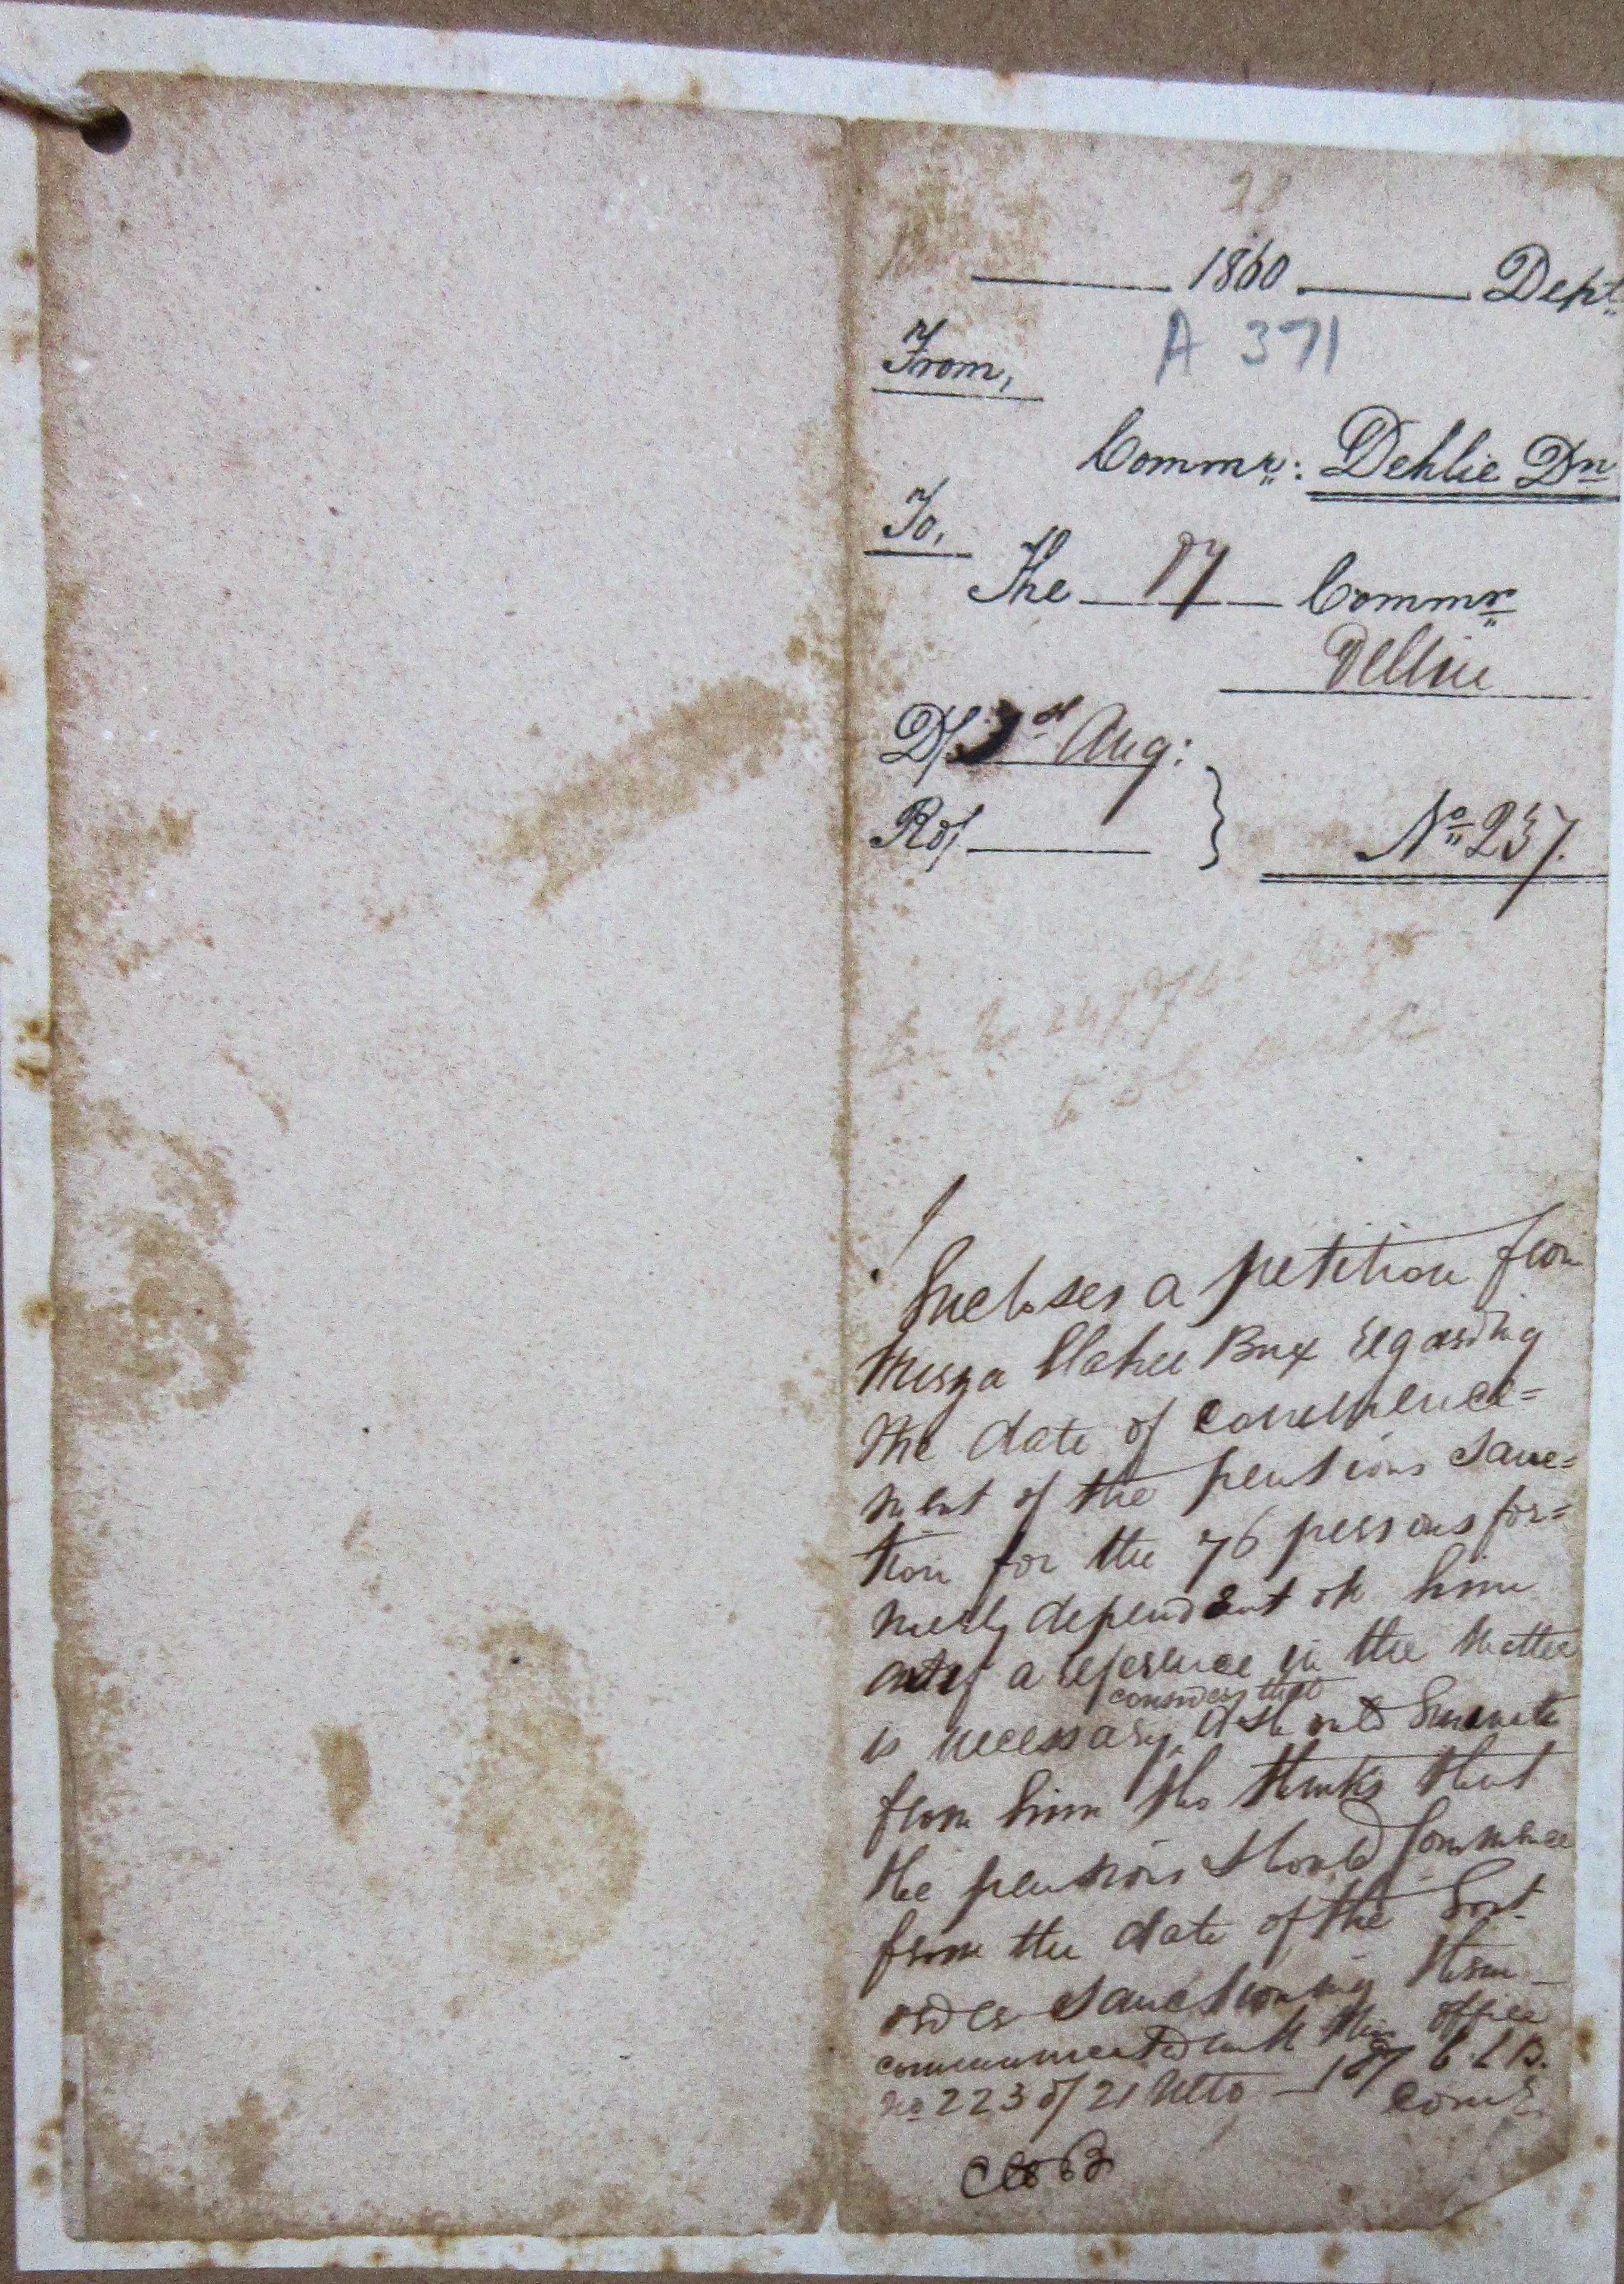 28
1860 Dept.
A 371
From,
Commr: Dehlie Dn
To,
The Dy Commr
Delhie
D/ 1st Aug:
R0/
No 237.
Incloses a petition from
Mirza Ilahee Bux regarding
the date of commence=
ment of the pensions sanc=
tion for the 76 persons for=
merly dependent on him
and if a reference in the matter
is necessary considers that it should emanate
from him tho thinks that
the pensions should commence
from the date of the Govt.
order sanctioning them
communicated with this office
No 223 of 21 Ulto